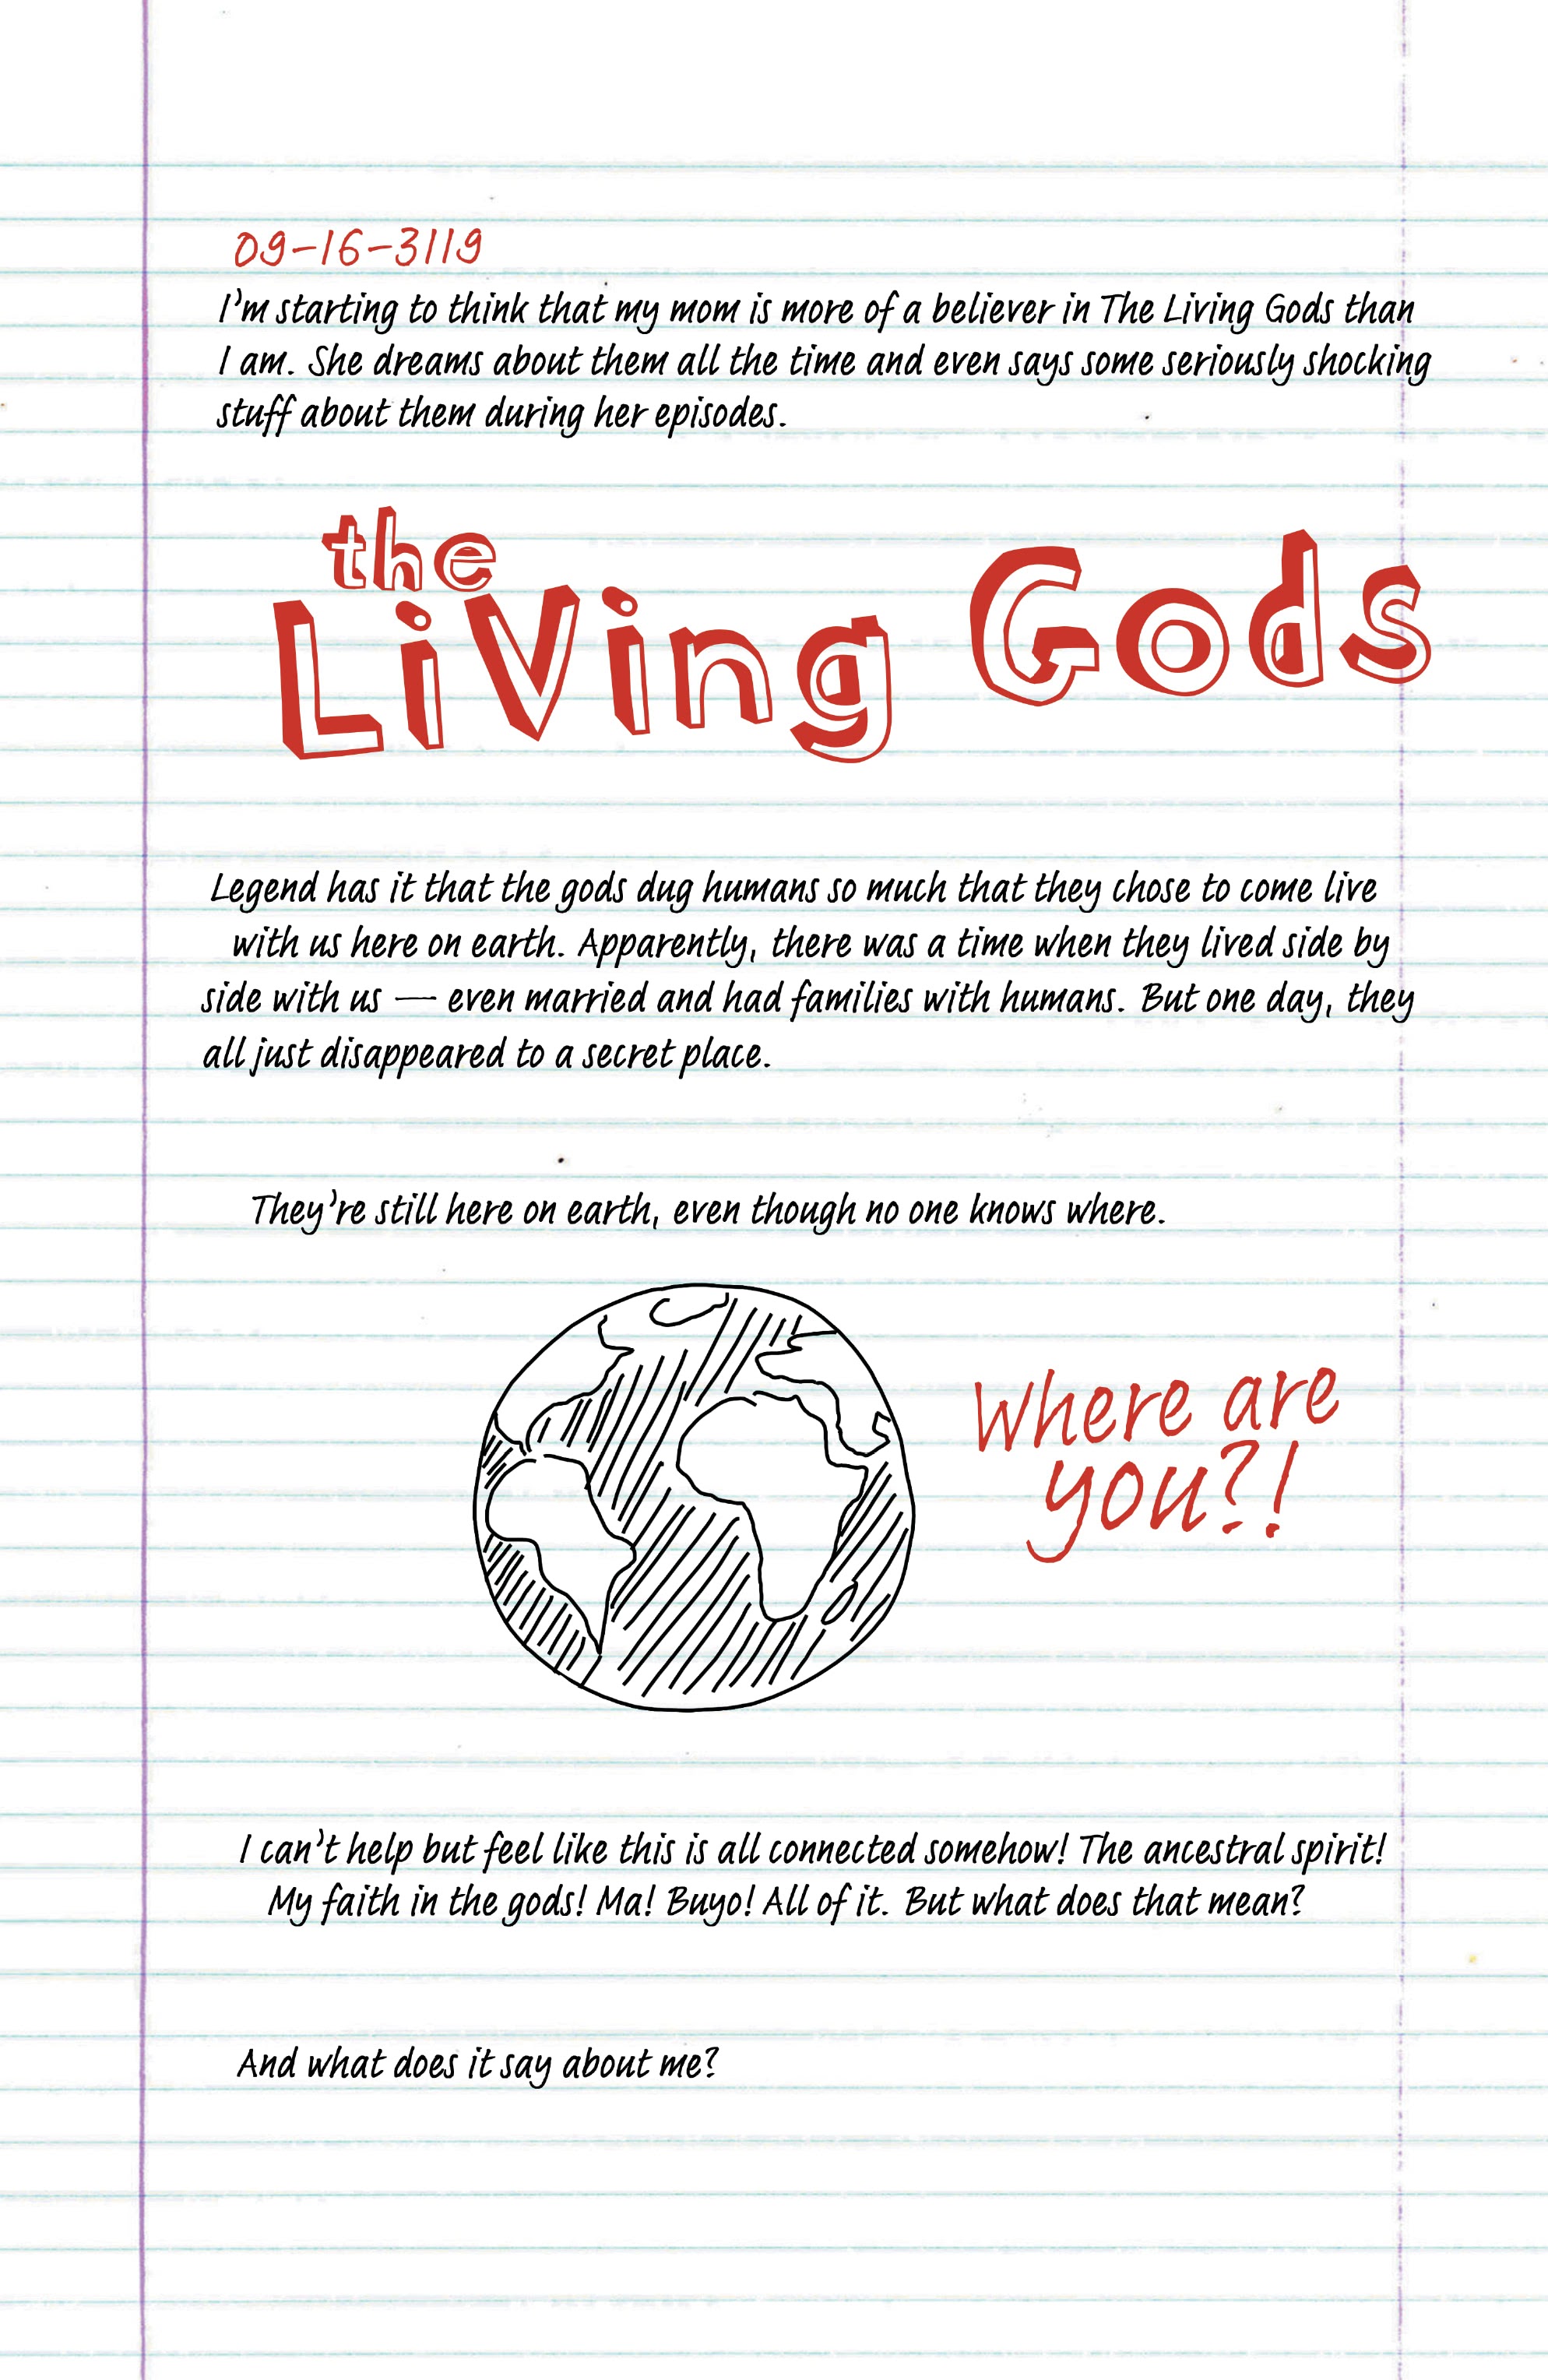 09-16-3119
I'm starting to think that my mom is more of a believer in The Living Gods than
I am. She dreams about them all the time and even says some seriously shocking
stuff about them during her episodes.
the
LiVing Gods
Legend has it that the gods dug humans so much that they chose to come live
with us here on earth. Apparently, there was a time when they lived side by
side with us — even married and had families with humans. But one day, they
all just disappeared to a secret place.
They're still here on earth, even though no one knows where.
Where are
you?!
I can't help but feel like this is all connected somehow! The ancestral spirit!
My faith in the gods! Ma! Buyo! All of it. But what does that mean?
And what does it say about me?